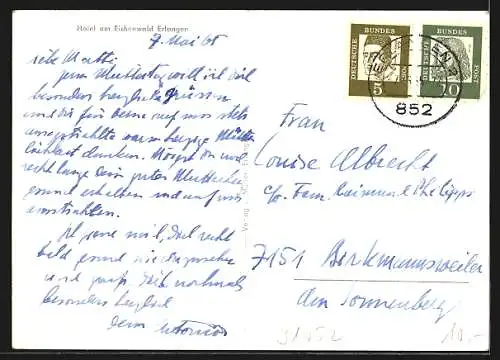 Hotel am Eichenwald Erlangen
7. Mai 65
liebe Mutti,
zum Muttertag will ich Dich
besonders herzlich grüssen
und Dir für Deine auf uns stets
ausgestrahlte warmherzige Mütter
lichkeit danken. Mögest Du noch
recht lange Dein gutes Mutterherz
gesund erhalten und auf uns
ausstrahlen.
Ich freue mich, Dich recht
bald gesund wiederzusehen
und grüße Dich nochmals
besonders herzlich
Dein
DEUTSCHE BUNDESPOST
5
DEUTSCHE BUNDESPOST
20
852
Frau
Louise Albrecht
c/o. Fam. Philipp
7151 Birkmannsweiler
Am Sonnenberg
Verlag
10.-